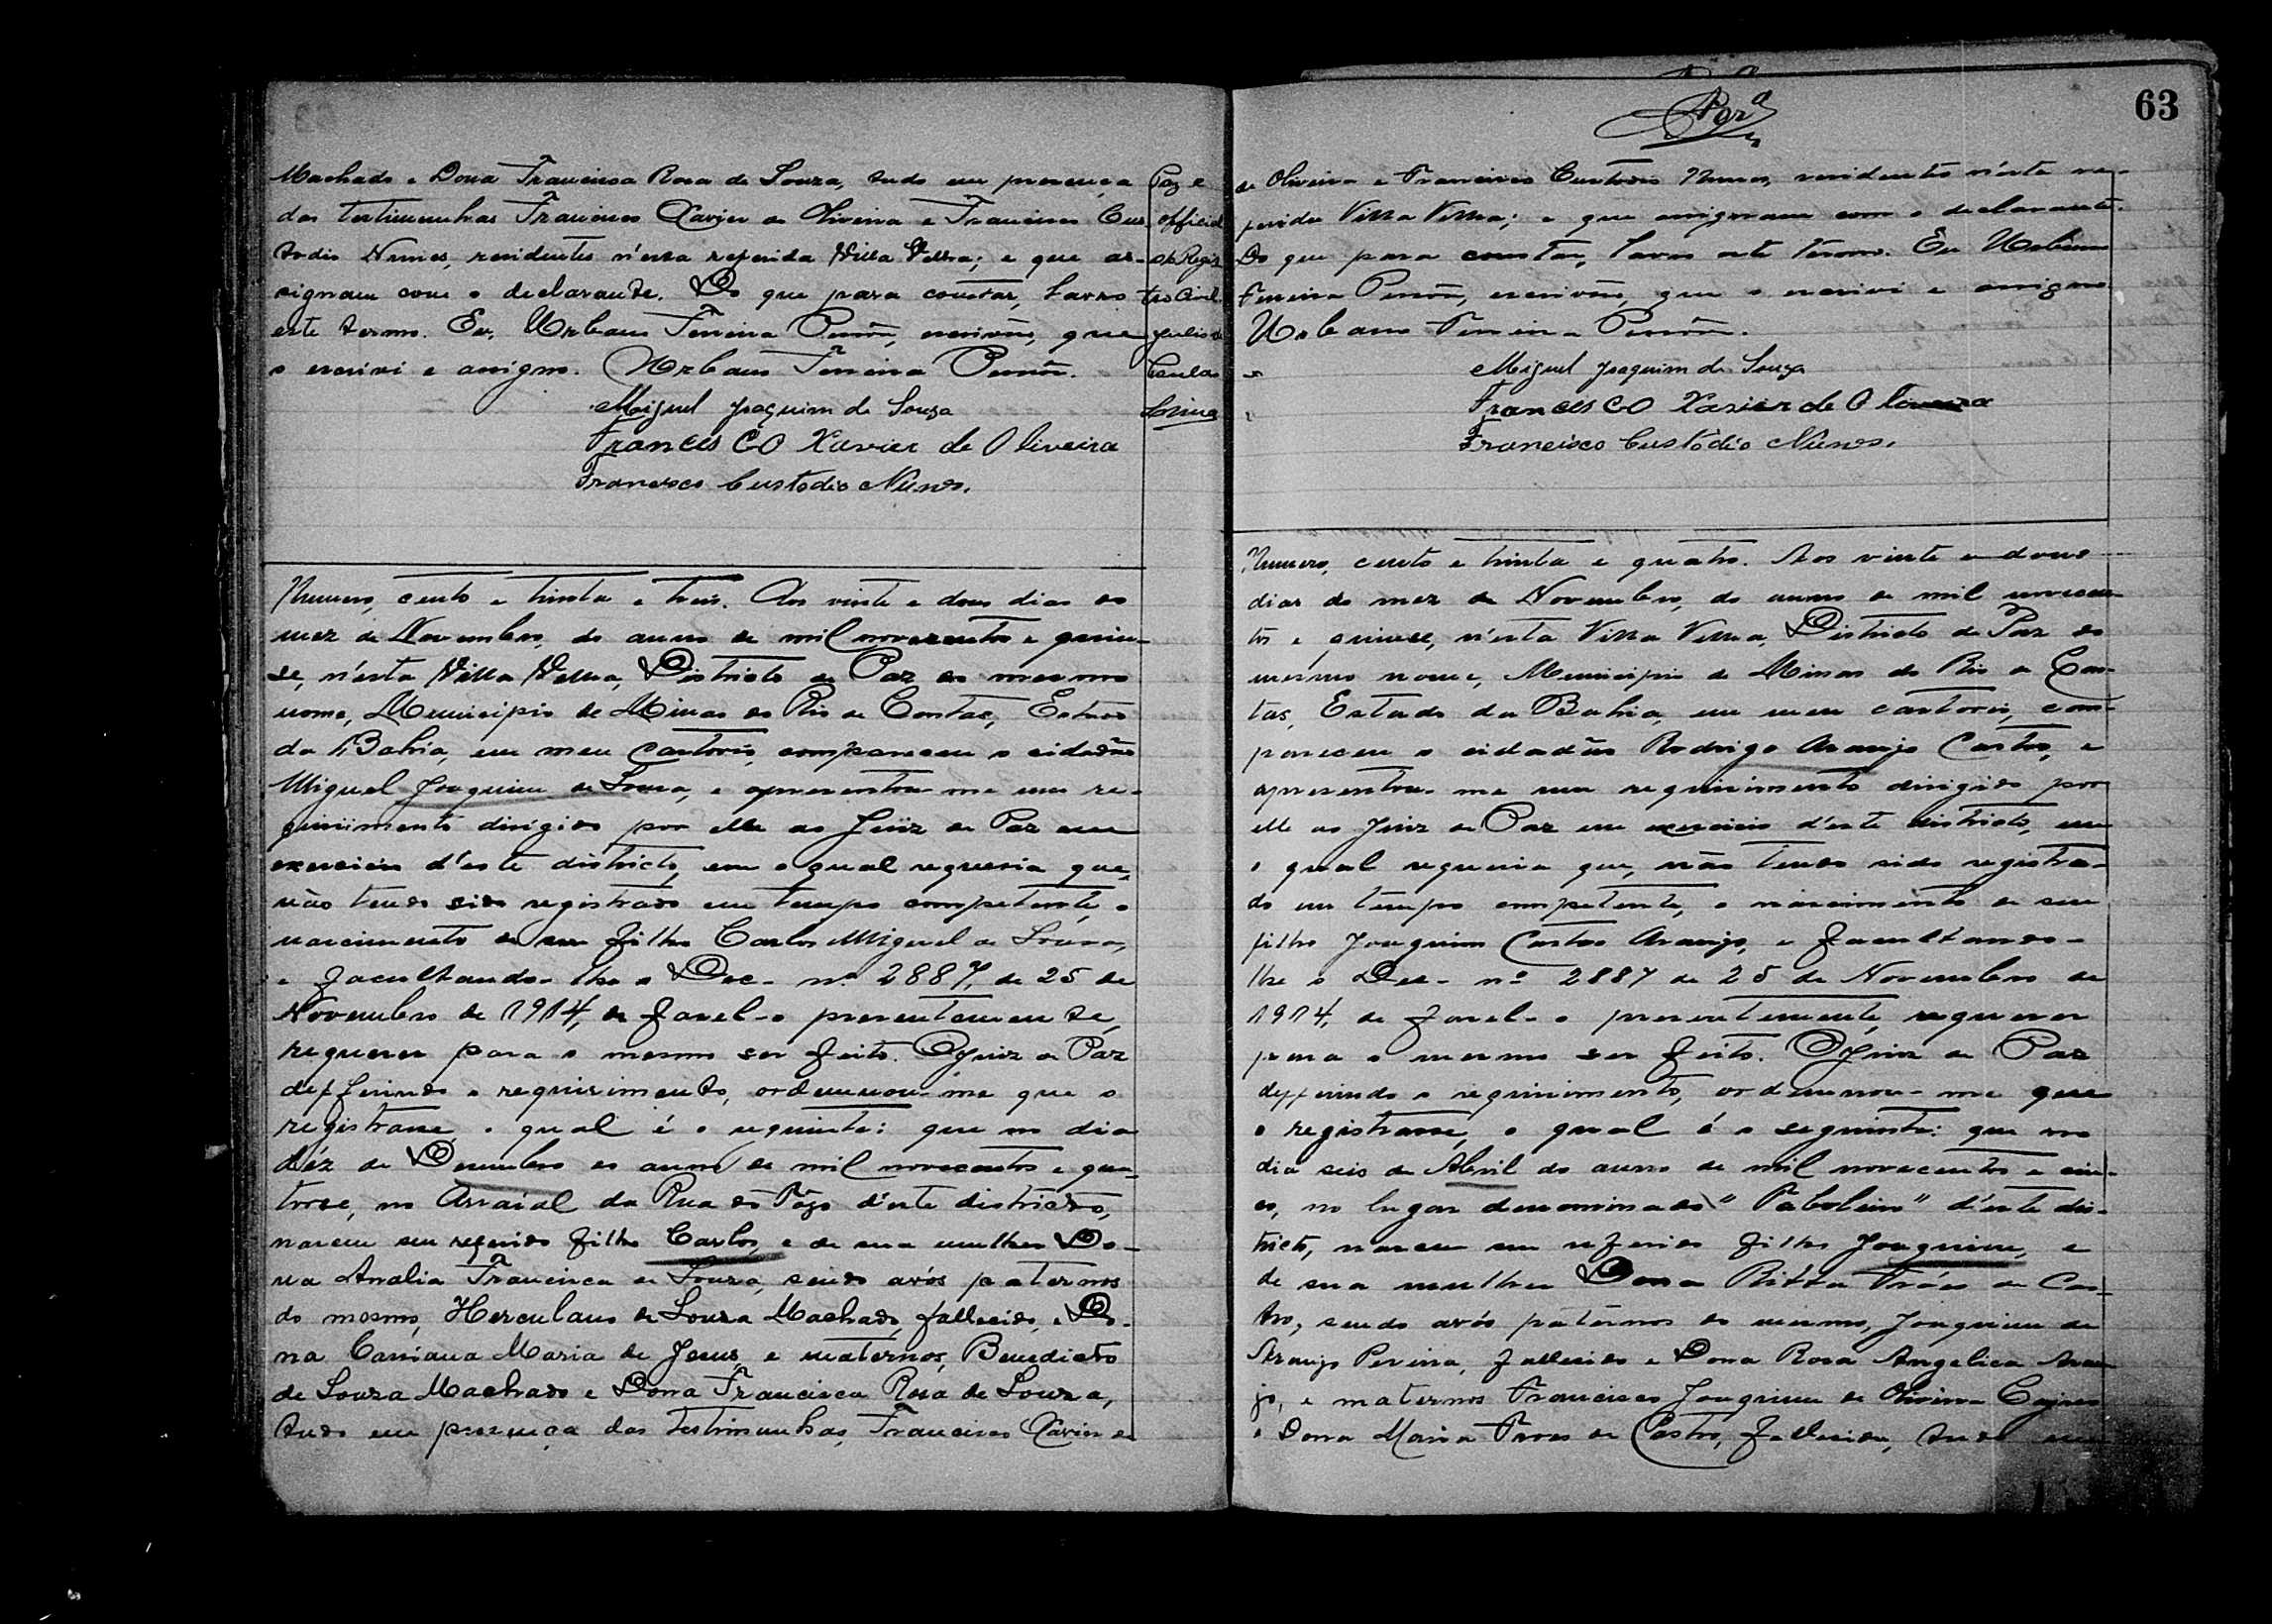 Machado e Dona Francisca Rosa de Souza, tudo em presença
das testimunhas Francisco Xavier de Oliveira e Francisco Cus-
todio Nunes, residentes n'esta referida Villa Velha; e que as-
signam com o declarante. Do que para constar, lavro
este termo. Eu, Urbano Ferreira escrivão, que
o escrivi e assigno. Urbano Ferreira
Miguel Joaquim de Souza
Francisco Xavier de Oliveira
Francisco Custodio Nunes.
Paz e
official
do Regis
tro Civil
Lima
Numero, cento e trinta e tres. Aos vinte e dous dias do
mez de Novembro, do anno de mil novecentos e quin-
se, n'esta Villa Velha, Districto de Paz do mesmo
nome, Municipio de Minas do Rio de Contas, Estado
da Bahia, em meu cartorio, compareceu o cidadão
Miguel Joaquim de Souza, e apresentou-me um re-
quirimento dirigido por elle ao Juiz de Paz em
exercicio d'este districto, em o qual requeria que,
não tendo sido registrado em tempo competente, o
nascimento de seu filho Carlos Miguel de Souza,
e facultando-lhe o Dec- nº 2887, de 25 de
Novembro de 1914, de fazel-o presentemente,
requerer para o mesmo ser feito. O Juiz de Paz
defferindo o requirimento, ordennou-me que o
registrasse, o qual é o seguinte: que no dia
déz de Dezembro do anno de mil novecentos e qua-
torse, no Arraial da Rua do Fôgo d'este districto,
nasceu seu referido filho Carlos, e de sua mulher Do-
na Analia Francisca de Souza, sendo avós paternos
do mesmo, Herculano de Souza Machado, fallecido, e Do-
na Cassiana Maria de Jesus, e maternos, Benedicto
de Souza Machado e Dona Francisca Rosa de Souza,
tudo em presença das testimunhas, Francisco Xavier de
63
de Oliveira e Francisco Custodio Nunes, residentes n'esta re-
ferida Villa Velha; e que assignam com o declarante.
Do que para constar, lavro este termo. Eu Urbano
Ferreira escrivão, que o escrivi e assigno
Urbano Ferreira
Miguel Joaquim de Souza
Francisco Xavier de Oliveira
Francisco Custódio Nunes.
Numero, cento e trinta e quatro. Aos vinte e dous
dias do mez de Novembro, do anno de mil novecen-
tos e quinse, n'esta Villa Velha, Districto de Paz do
mesmo nome, Municipio de Minas do Rio de Con-
tas, Estado da Bahia, em meu cartorio, com-
pareceu o cidadão Rodrigo Araujo Castro, e
apresentou-me um requirimento dirigido por
elle ao Juiz de Paz em exercicio d'este districto, em
o qual requeria que, não tendo sido registra-
do em tempo competente, o nascimento de seu
filho Joaquim Castro Araujo, e facultando-
lhe o Dec- nº 2887 de 25 de Novembro de
1914, de fazel-o presentemente, requerer
para o mesmo ser feito. O Juiz de Paz
defferindo o requirimento, ordennou-me que
o registrasse, o qual é o seguinte: que no
dia seis de Abril do anno de mil novecentos e cin-
co, no lugar denominado "Taboleiro" d'este dis-
tricto, nasceu seu referido filho Joaquim, e
de sua mulher Dona Ritta Fróes de Cas-
tro, sendo avós patérnos do mesmo, Joaquim de
Araujo Pereira, fallecido e Dona Rosa Angelica Arau-
jo, e maternos Francisco Joaquim de Oliveira
e Dona Maria Froes de Castro, fallecida, tudo em